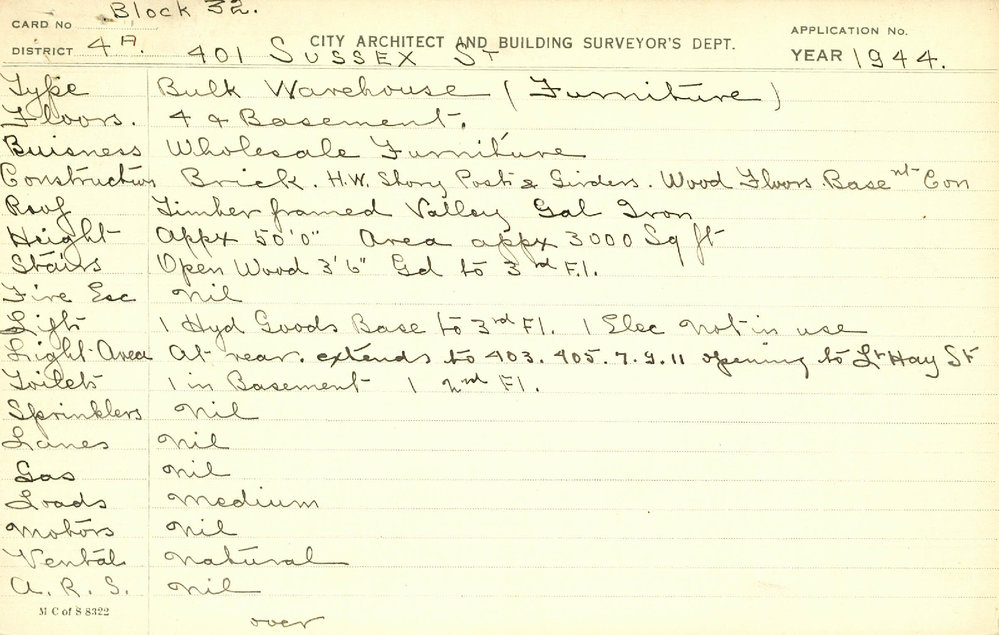 CARD No Block 32.
CITY ARCHITECT AND BUILDING SURVEYOR'S DEPT. APPLICATION No.
DISTRICT 4A. 401 SUSSEX ST YEAR 1944.
Type Bulk Warehouse (Furniture)
Floors. 4 & Basement.
Buisness Wholesale Furniture
Construction Brick. H.W. Story Posts & Girders. Wood Floors. Basent Con
Roof Timber framed Valley Gal Iron
Height Appx 50'0" Area appx 3000 Sq ft
Stairs Open Wood 3'6" Gd to 3rd Fl.
Fire Esc Nil
Lifts 1 Hyd Goods Base to 3rd Fl. 1 Elec Not in use
Light Area At rear. extends to 403. 405. 7. 9. 11 opening to Lt Hay St
Toilets 1 in Basement 1 2nd Fl.
Sprinklers Nil
Lanes Nil
Gas Nil
Loads Medium
Motors Nil
Vental Natural
A. R. S. Nil
M C of S 8322
over